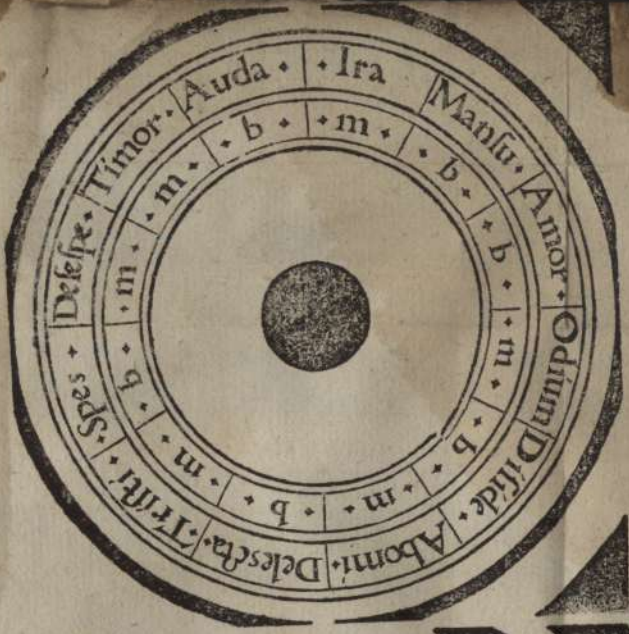 · Ira
Manſu·
Amor ·
Odium
Diſide ·
Abomi·
Delecta·
Triſti ·
Spes ·
Deſeſpe·
Timor·
Auda ·
· m ·
· b ·
· b ·
· m ·
· b ·
· m ·
· b ·
· m ·
· b ·
· m ·
· m ·
· b ·